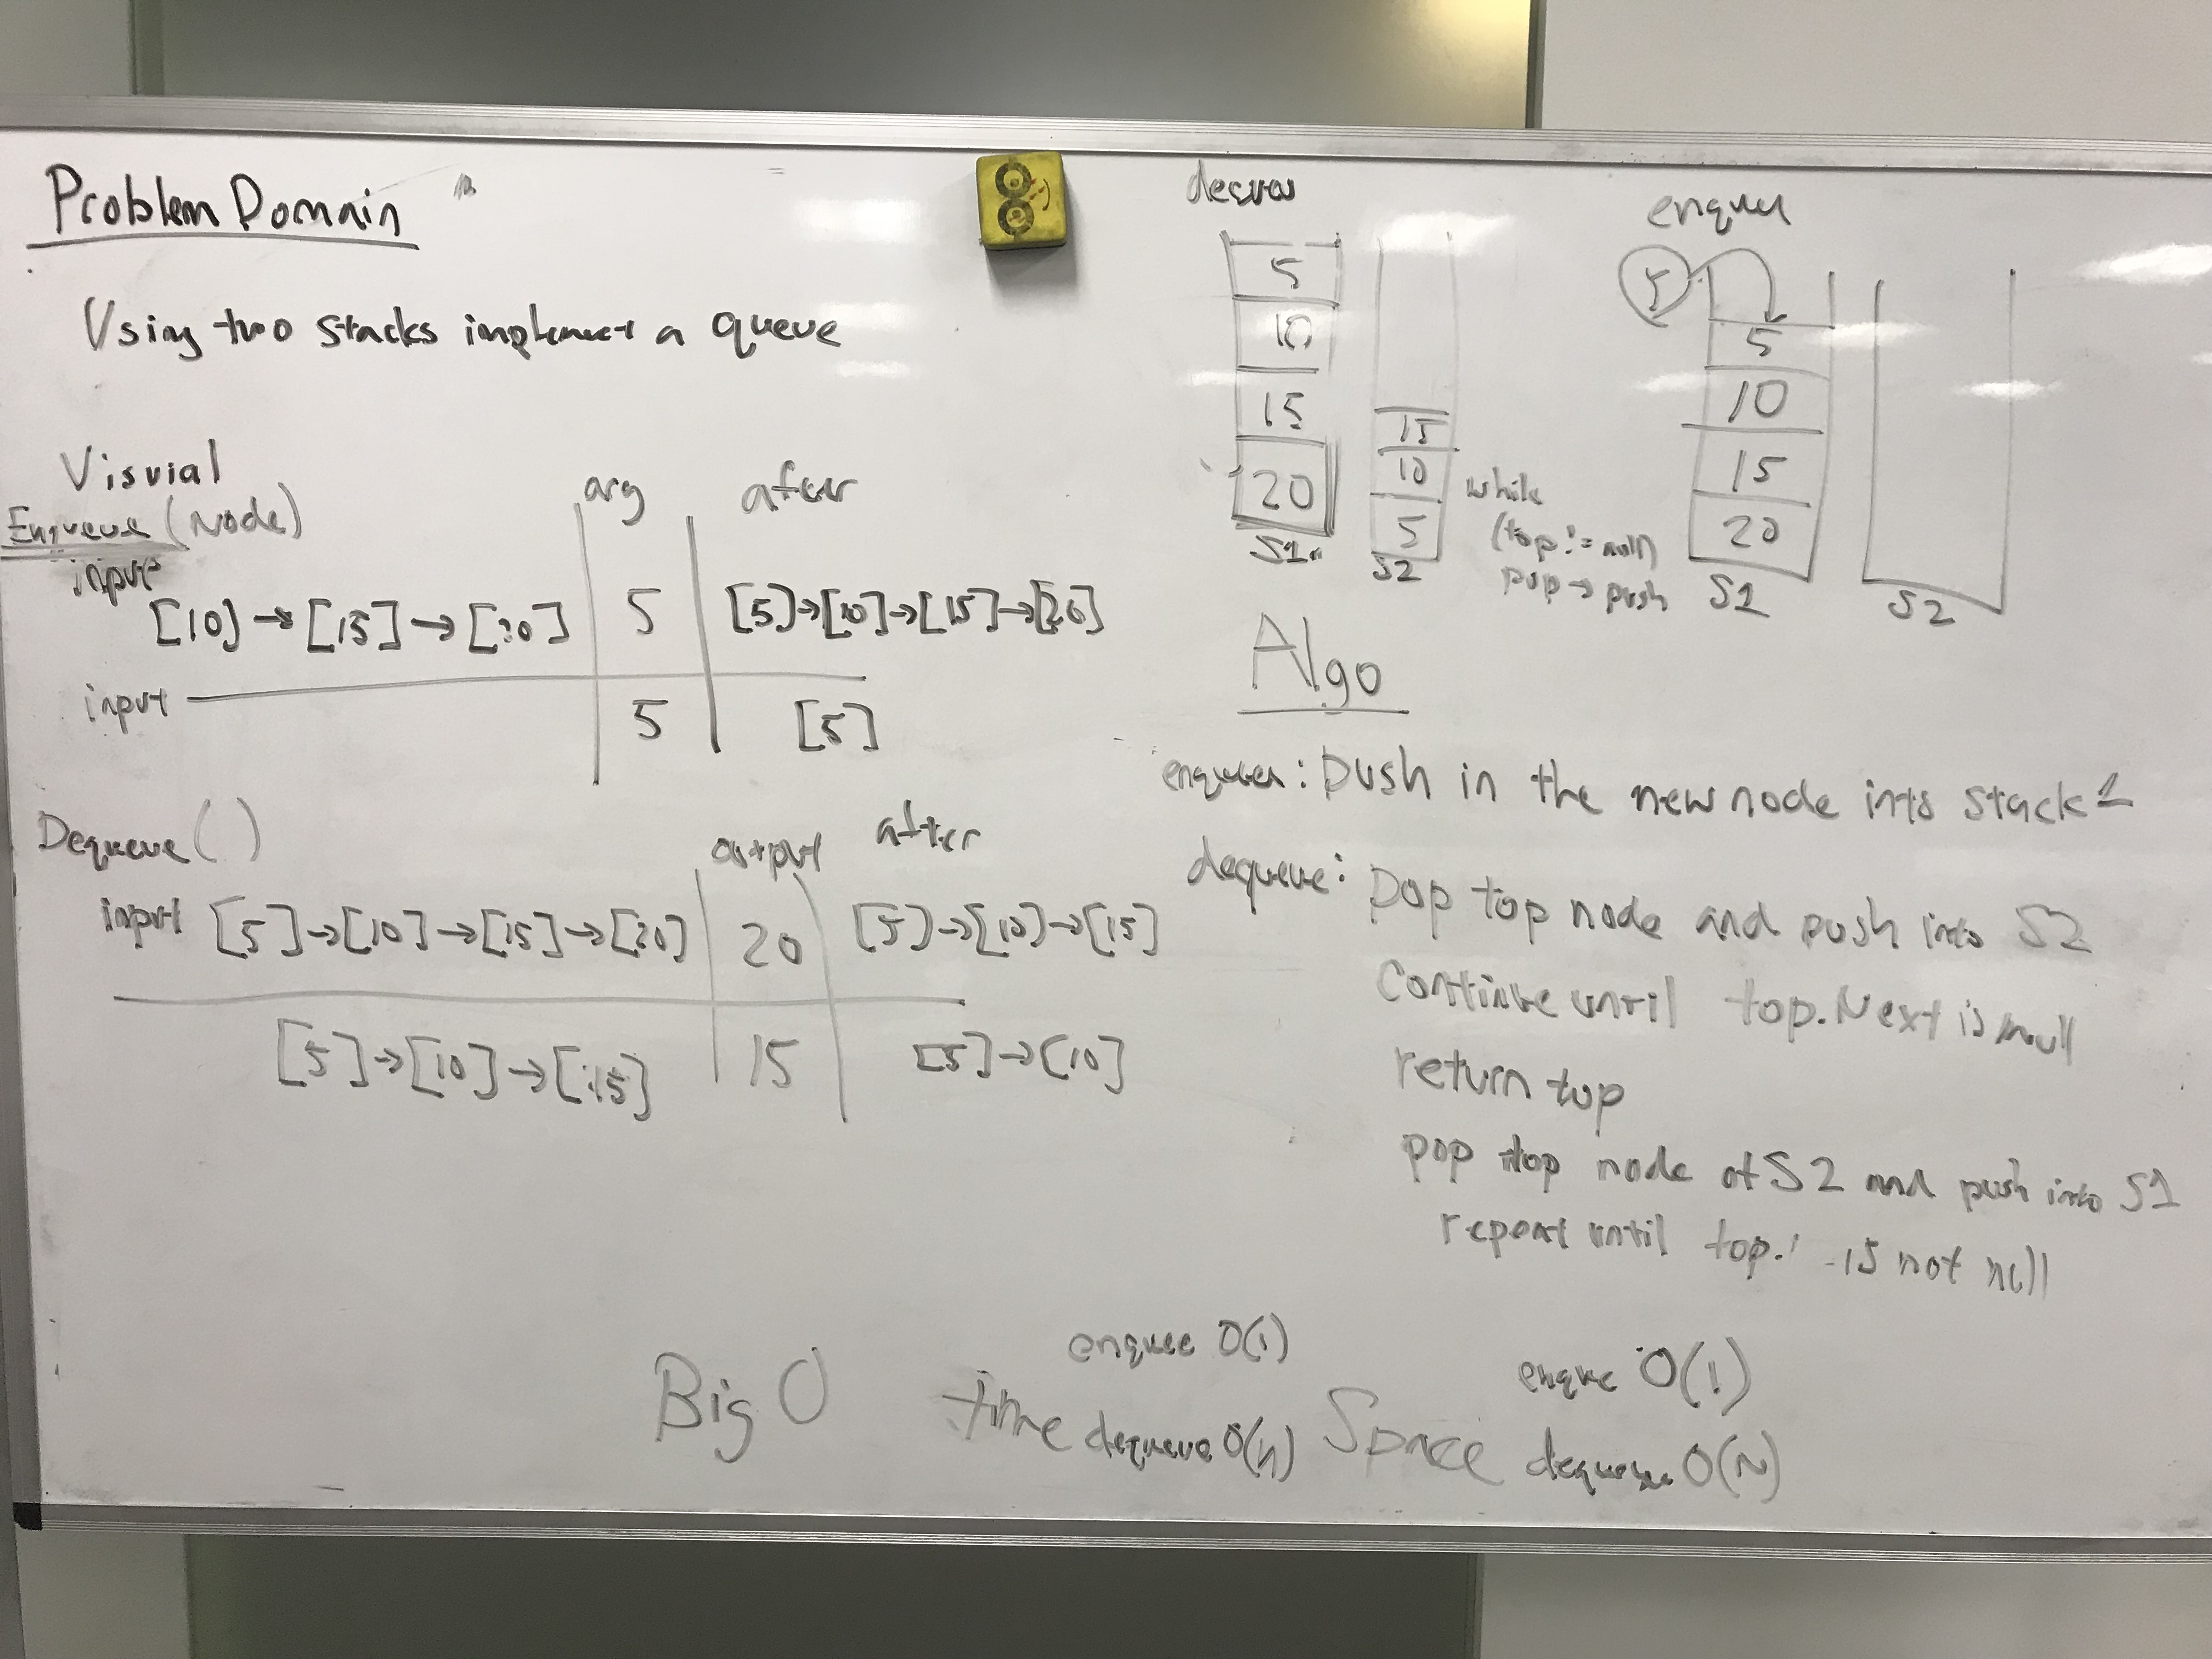 Problem Domain
Using two stacks implement a queue
Visvial
Enqueue (Node)
arg after
input
[10] → [15] → [20] 5 [5]→[10]→[15]→[20]
input 5 [5]
Dequeue ( )
output after
input [5]→[10]→[15]→[20] 20 [5]→[10]→[15]
[5]→[10]→[15] 15 [5]→[10]
5
10
15
20
S1
15
10
5
S2
while
(top != null)
pop → push
enque
5
5
10
15
20
S1
S2
Algo
: push in the new node into stack 1
dequeue: pop top node and push into S2
Continue until top.Next is null
return top
pop top node of S2 and push into S1
repeat until top. is not null
Big O
time
enquee O(1)
dequeue O(n)
Space
enque O(1)
dequeue O(N)